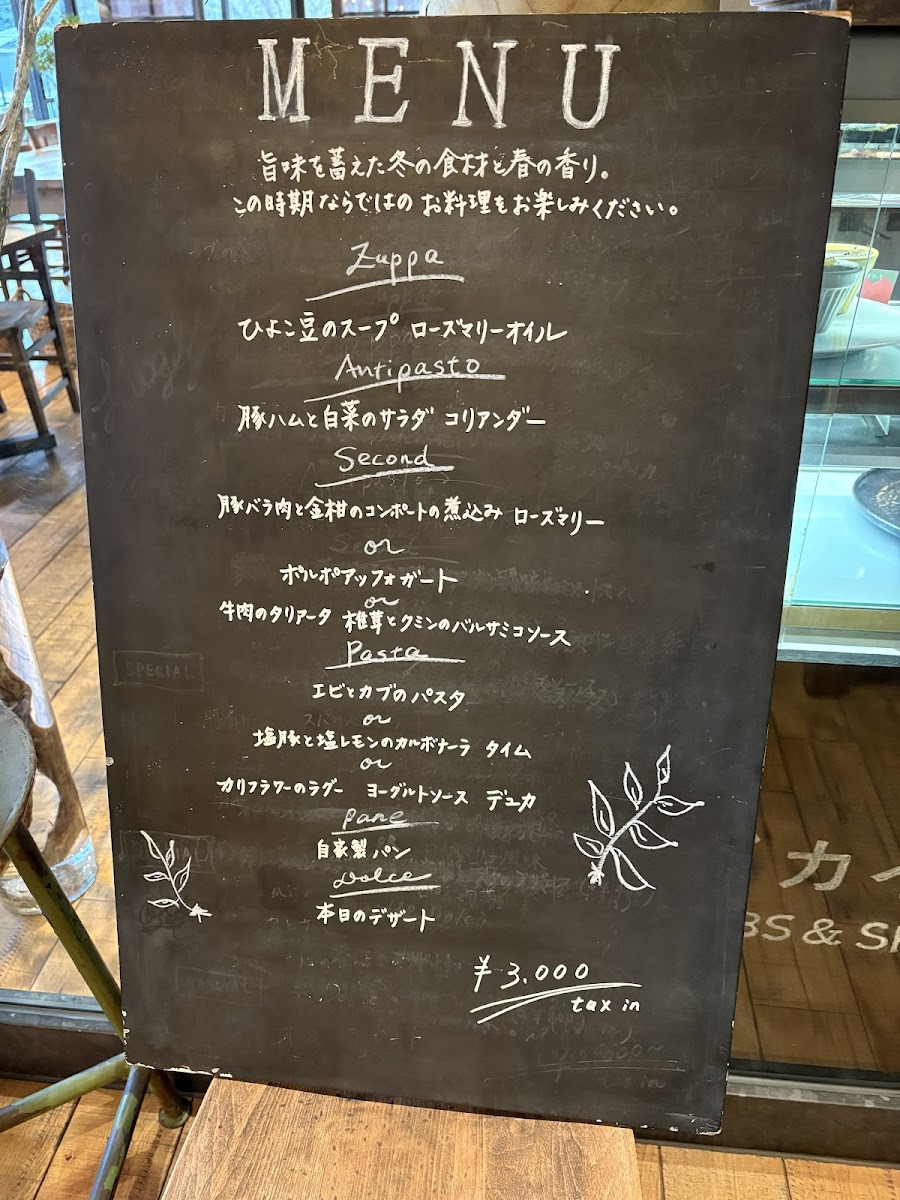 MENU
旨味を蓄えた冬の食材と春の香り。
この時期ならではのお料理をお楽しみください。
Zuppa
ひよこ豆のスープ ローズマリーオイル
Antipasto
豚ハムと白菜のサラダ コリアンダー
Second
豚バラ肉と金柑のコンポートの煮込み ローズマリー
or
ポルポアッフォガート
or
牛肉のタリアータ 椎茸とクミンのバルサミコソース
Pasta
エビとカブのパスタ
or
塩豚と塩レモンのカルボナーラ タイム
or
カリフラワーのラグー ヨーグルトソース デュカ
Pane
自家製パン
Dolce
本日のデザート
¥3,000
tax in
SPECIAL
カ
BS & S